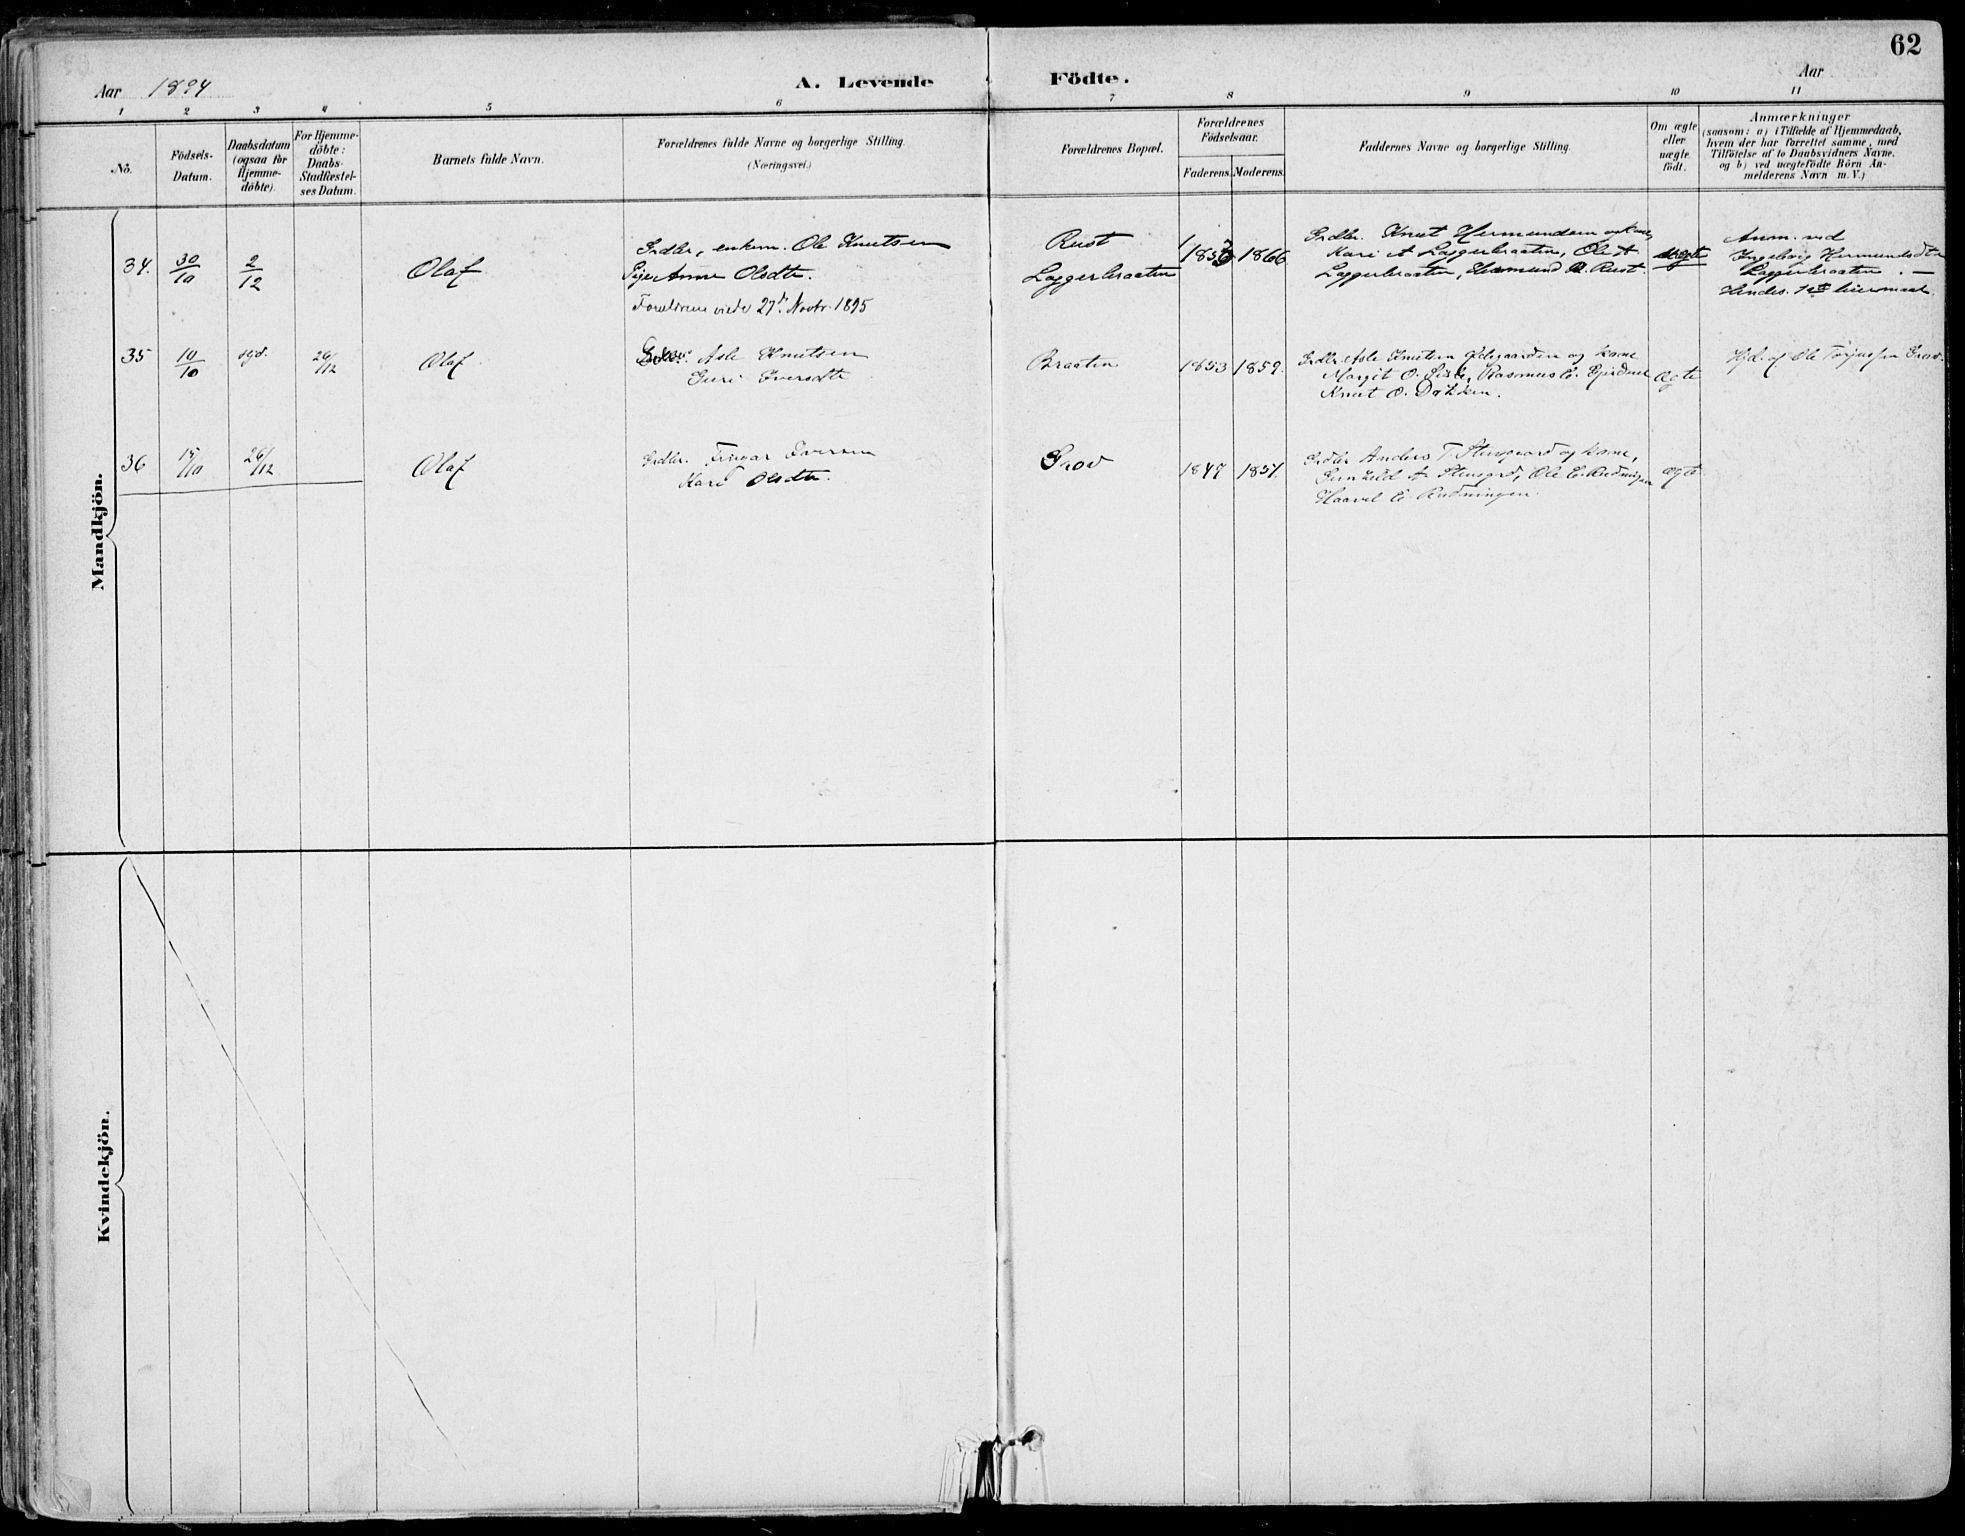 62
Aar 1894
A. Levende Födte.
Aar
1 2 3 4 5 6 7 8 9 10 11
No.
Födsels-
Datum.
Daabsdatum
(ogsaa for
Hjemme-
döbte).
For Hjemme-
döbte:
Daabs-
Stadfestel-
ses Datum.
Barnets fulde Navn.
Forældrenes fulde Navne og borgerlige Stilling.
(Næringsvei.)
Forældrenes Bopæl.
Forældrenes
Födselsaar.
Faderens. Moderens.
Faddernes Navne og borgerlige Stilling.
Om ægte
eller
uægte
födt.
Anmærkninger
(saasom: a) i Tilfælde af Hjemmedaab,
hvem der har forrettet samme, med
Tilföielse af to Daabsvidners Navne,
og b) ved uægtefödte Börn An-
melderens Navn m. V.)
Mandkjön.
34.
30/10
2/12
Olaf
Grdbr., enkem. Ole Knutsen
Pige Anne Olsdtr.
Foreldrene viede 27de Novbr. 1895
Rust
Laggerbraaten
1853
1866
Grdbr. Knut Hermundsen og kone
Kari A Laggerbraaten, Ole A
Laggerbraaten, Hermund O. Rust
uægte
Anm. ved
Ingeborg Hermundsdtr
Laggerbraaten. —
Hendes 1ste leiermaal.
35
10/10
26/12
Olaf
Asle Knutsen
Guri Iversdtr
Braaten
1853
1859.
Grdbr. Asle Knutsen Ødegaarden og kone
Margit O. Rasmus E.
Knut O.
ægte
Hjd. af Ole Grov.
36
15/10
26/12
Olaf
Grdbr. Iversen
Kari Olsdtr.
Grov
1847
1857.
Grdbr Anders T. Stensgaard og kone,
Gunhild A Stensgrd, Ole E. Rudningen
Haavel E. Rudningen.
ægte
Kvindekjön.